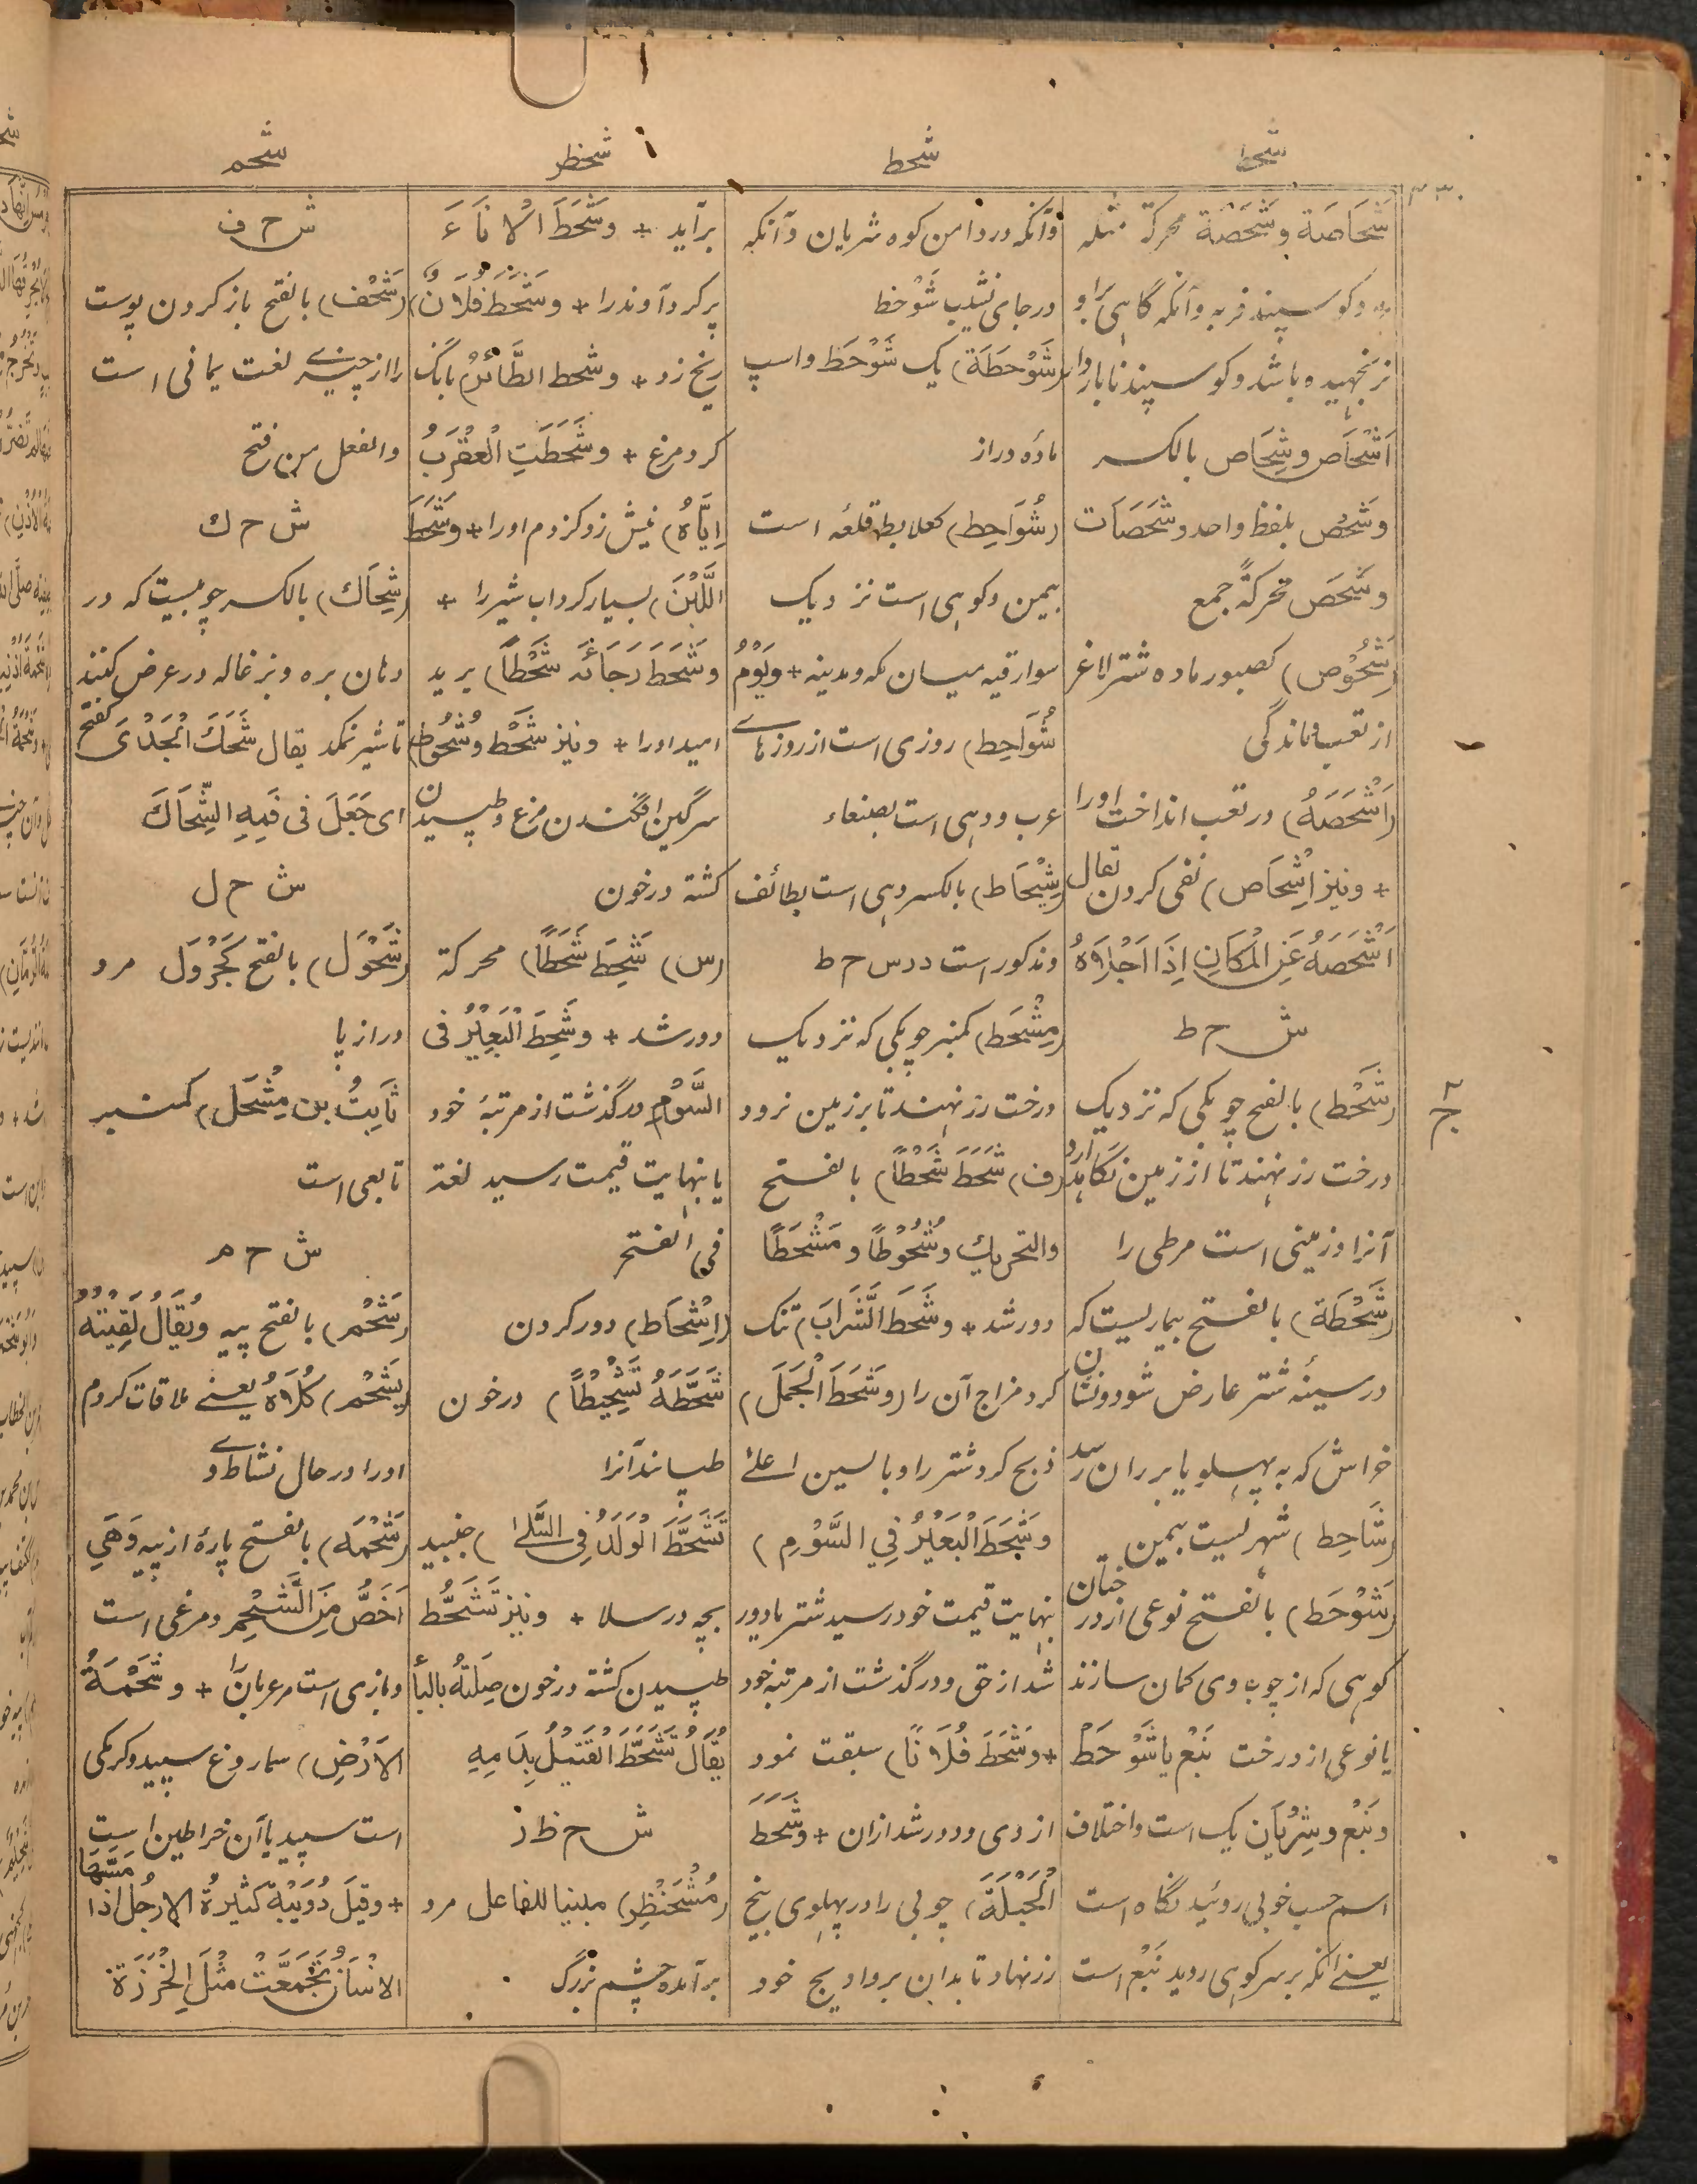 شحط
شحط
شحنظر
شحم
۲۳۰
شَحَاصَة وشَحَصَة محرکة مثله
+ وگوسپند فربه وآنکه گاهی بر او
نر نجهیده باشد وگوسپند نابار دار
اَشْحَاص وشِحَاص بالکسر
وشَحْص بلفظ واحد وشَحَصَات
وشَحَص محرکةً جمع
(شَحُوْص) کصبور ماده شتر لاغر
از تعب وماندگی
(اَشْحَصَهُ) در تعب انداخت اورا
+ ونیز اِشْحَاص) نفی کردن یقال
اَشْحَصَهُ عَنِ الْمَکَانِ اِذَا اَجْلَاهُ
ش ح ط
(شَحْط) بالفتح چوبکی که نزدیک
درخت رز نهند تا از زمین نگاهدارد
آنرا وزمینی است مرطی را
(شَحْطَة) بالفتح بیماریست که
در سینهٔ شتر عارض شود ونشان
خراش که به پهلو یا بر ران رسد
(شَاحِط) شهریست بیمن
(شَوْحَط) بالفتح نوعی از درختان
کوهی که از چوب وی کمان سازند
یا نوعی از درخت نَبْع یا شَوْحَط
ونَبْع وشِرْیَان یک است واختلاف
اسم حسب خوبی روئیدنگاه است
یعنے آنکه بر سر کوهی روید نَبْع است
وآنکه در دامن کوه شریان وآنکه
در جای نشیب شَوْحَط
(شَوْحَطَة) یک شَوْحَط واسپ
ماده دراز
(شُوَاحِط) کعلابط قلعه است
بیمن وکوهی است نزدیک
سوارقیه میان مکه ومدینه + ویَوْمُ
شُوَاحِط) روزی است از روزهای
عرب ودهی است بصنعاء
(شِیْحَاط) بالکسر دهی است بطائف
ومذکور است در س ح ط
(مِشْحَط) کمنبر چوبکی که نزدیک
درخت رز نهند تا بر زمین نرود
(ف) شَحَطَ شَحْطاً) بالفتح
والتحریك وشُحُوْطًا ومَشْحَطًا
دور شد + وشَحَطَ الشَّرَابَ) تنک
کرد مزاج آن را (وشَحَطَ الْجَمَلَ)
ذبح کرد شتر را وبالسین اعلیٰ
وشَحَطَ الْبَعِیْرُ فِي السَّوْمِ)
نهایت قیمت خود رسید شتر یا دور
شد از حق ودر گذشت از مرتبه خود
+ وشَحَطَ فُلَانًا) سبقت نمود
از وی ودور شد ازان + وشَحَطَ
الْحَبْلَةَ) چوبی را در پهلوی بیخ
رز نهاد تا بدان بر وادیج خود
برآید + وشَحَطَ الْاِنَاءَ
پر کرد آوند را + وشَحَطَ فُلَانٌ)
ریخ زد + وشحط الطَّائِرُ) بانگ
کرد مرغ + وشَحَطَتِ الْعَقْرَبُ
اِیَّاهُ) نیش زد کژدم اورا + وشَحَطَ
اللَّبَنَ) بسیار کرد آب شیر را +
وشَحَطَ رَجَائَه شَحْطاً) برید
امید اورا + ونیز شَحْط وشُحُوط)
سرگین افگندن مرغ وطپیدن
کشته در خون
(س) شَحِطَ شَحَطًا) محرکة
دور شد + وشَحِطَ الْبَعِیْرُ فی
السَّوْمِ) در گذشت از مرتبهٔ خود
یا نهایت قیمت رسید لغة
فی الفتح
(اِشْحَاط) دور کردن
شَحَّطَهُ تَشْحِیْطًا) در خون
طپانید آنرا
تَشَحَّطَ الْوَلَدُ فِی السَّلَا) جنبید
بچه در سلا + ونیز تَشَحُّط
طپیدن کشته در خون صِلَتُهُ بالباء
یُقَالُ تَشَحَّطَ الْقَتِیْلُ بِدَمِهِ
ش ح ظ ر
(مُشْحَنْظِر) مبنیا للفاعل مرد
برآمده چشم بزرگ
ش ح ف
(شَحْف) بالفتح باز کردن پوست
را از چیزے لغت یمانی است
والفعل من فتح
ش ح ك
(شِحَاك) بالکسر چوبیست که در
دهان بره وبزغاله در عرض کنند
تا شیر نمکد یقال شَحَكَ الْجَدْیَ کفتح
ای جَعَلَ فی فَمِهِ الشِّحَاكَ
ش ح ل
(شَحْوَل) بالفتح کَجَرْوَل مرد
دراز پا
ثَابِتُ بن مِشْحَل) کمنبر
تابعی است
ش ح م
(شَحْم) بالفتح پیه ویُقَالُ لَقِیْتُهُ
بِشَحْمِ) کُلَاهُ یعنے ملاقات کردم
اورا در حال نشاط و
(شَحْمَه) بالفتح پارهٔ از پیه وَهِيَ
اَخَصُّ مِنَ الشَّحْمِ ومرغی است
وبازی است مر عربان را + وشَحْمَةُ
الْاَرْضِ) سماروغ سپید وکرمکی
است سپید یا آن خراطین است
+ وقِیلَ دُوَیْبَّة کَثِیْرَةُ الارْجُلِ اذا مَسَّهَا
الانْسَانُ تَجَمَّعَتْ مِثْلَ الْخَرَزَةِ